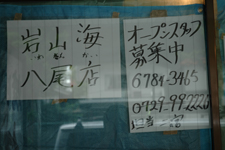 岩山海
八尾店
オープンスタッフ
募集中
6784-3465
0729-992220
担当